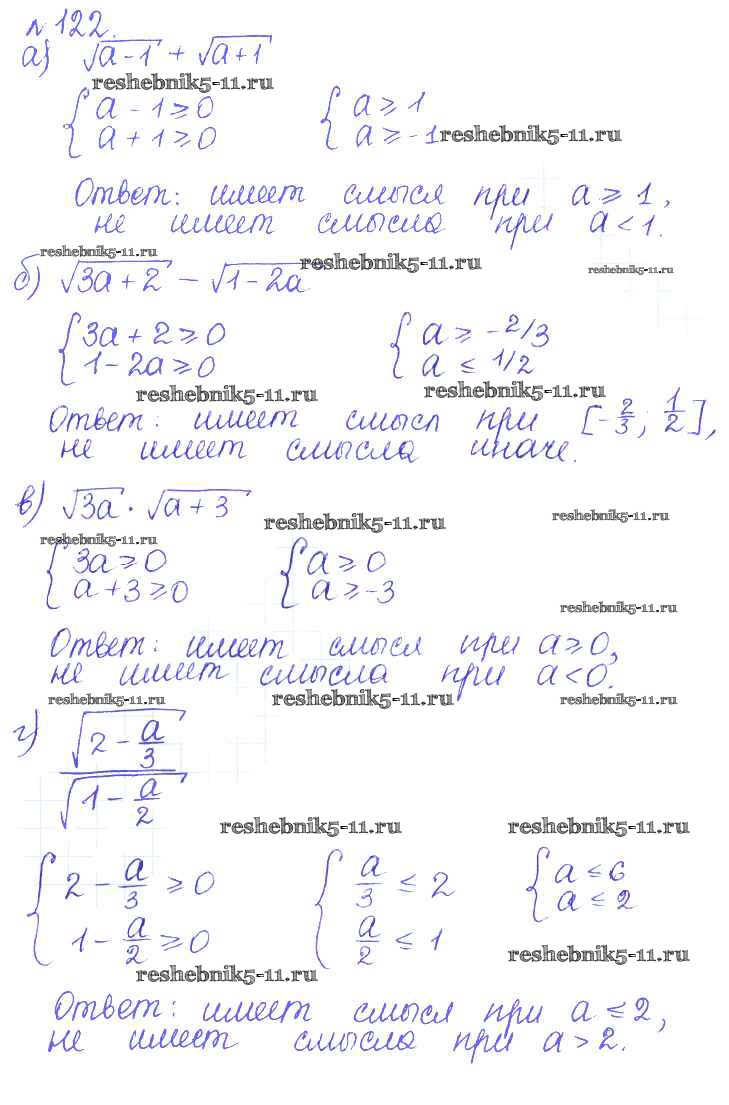 №122.
а) √(a-1) + √(a+1)
reshebnik5-11.ru
{ a - 1 ≥ 0 { a ≥ 1
{ a + 1 ≥ 0 { a ≥ -1 reshebnik5-11.ru
Ответ: имеет смысл при a ≥ 1,
не имеет смысла при a < 1.
reshebnik5-11.ru reshebnik5-11.ru reshebnik5-11.ru
б) √(3a+2) - √(1-2a)
{ 3a + 2 ≥ 0 { a ≥ -2/3
{ 1 - 2a ≥ 0 { a ≤ 1/2
reshebnik5-11.ru reshebnik5-11.ru
Ответ: имеет смысл при [-2/3; 1/2],
не имеет смысла иначе.
в) √(3a) · √(a+3)
reshebnik5-11.ru reshebnik5-11.ru
reshebnik5-11.ru
{ 3a ≥ 0 { a ≥ 0
{ a + 3 ≥ 0 { a ≥ -3
reshebnik5-11.ru
Ответ: имеет смысл при a ≥ 0,
не имеет смысла при a < 0.
reshebnik5-11.ru reshebnik5-11.ru reshebnik5-11.ru
г) √(2 - a/3) / √(1 - a/2)
reshebnik5-11.ru reshebnik5-11.ru
{ 2 - a/3 ≥ 0 { a/3 ≤ 2 { a ≤ 6
{ 1 - a/2 ≥ 0 { a/2 ≤ 1 { a ≤ 2
reshebnik5-11.ru reshebnik5-11.ru
Ответ: имеет смысл при a ≤ 2,
не имеет смысла при a > 2.